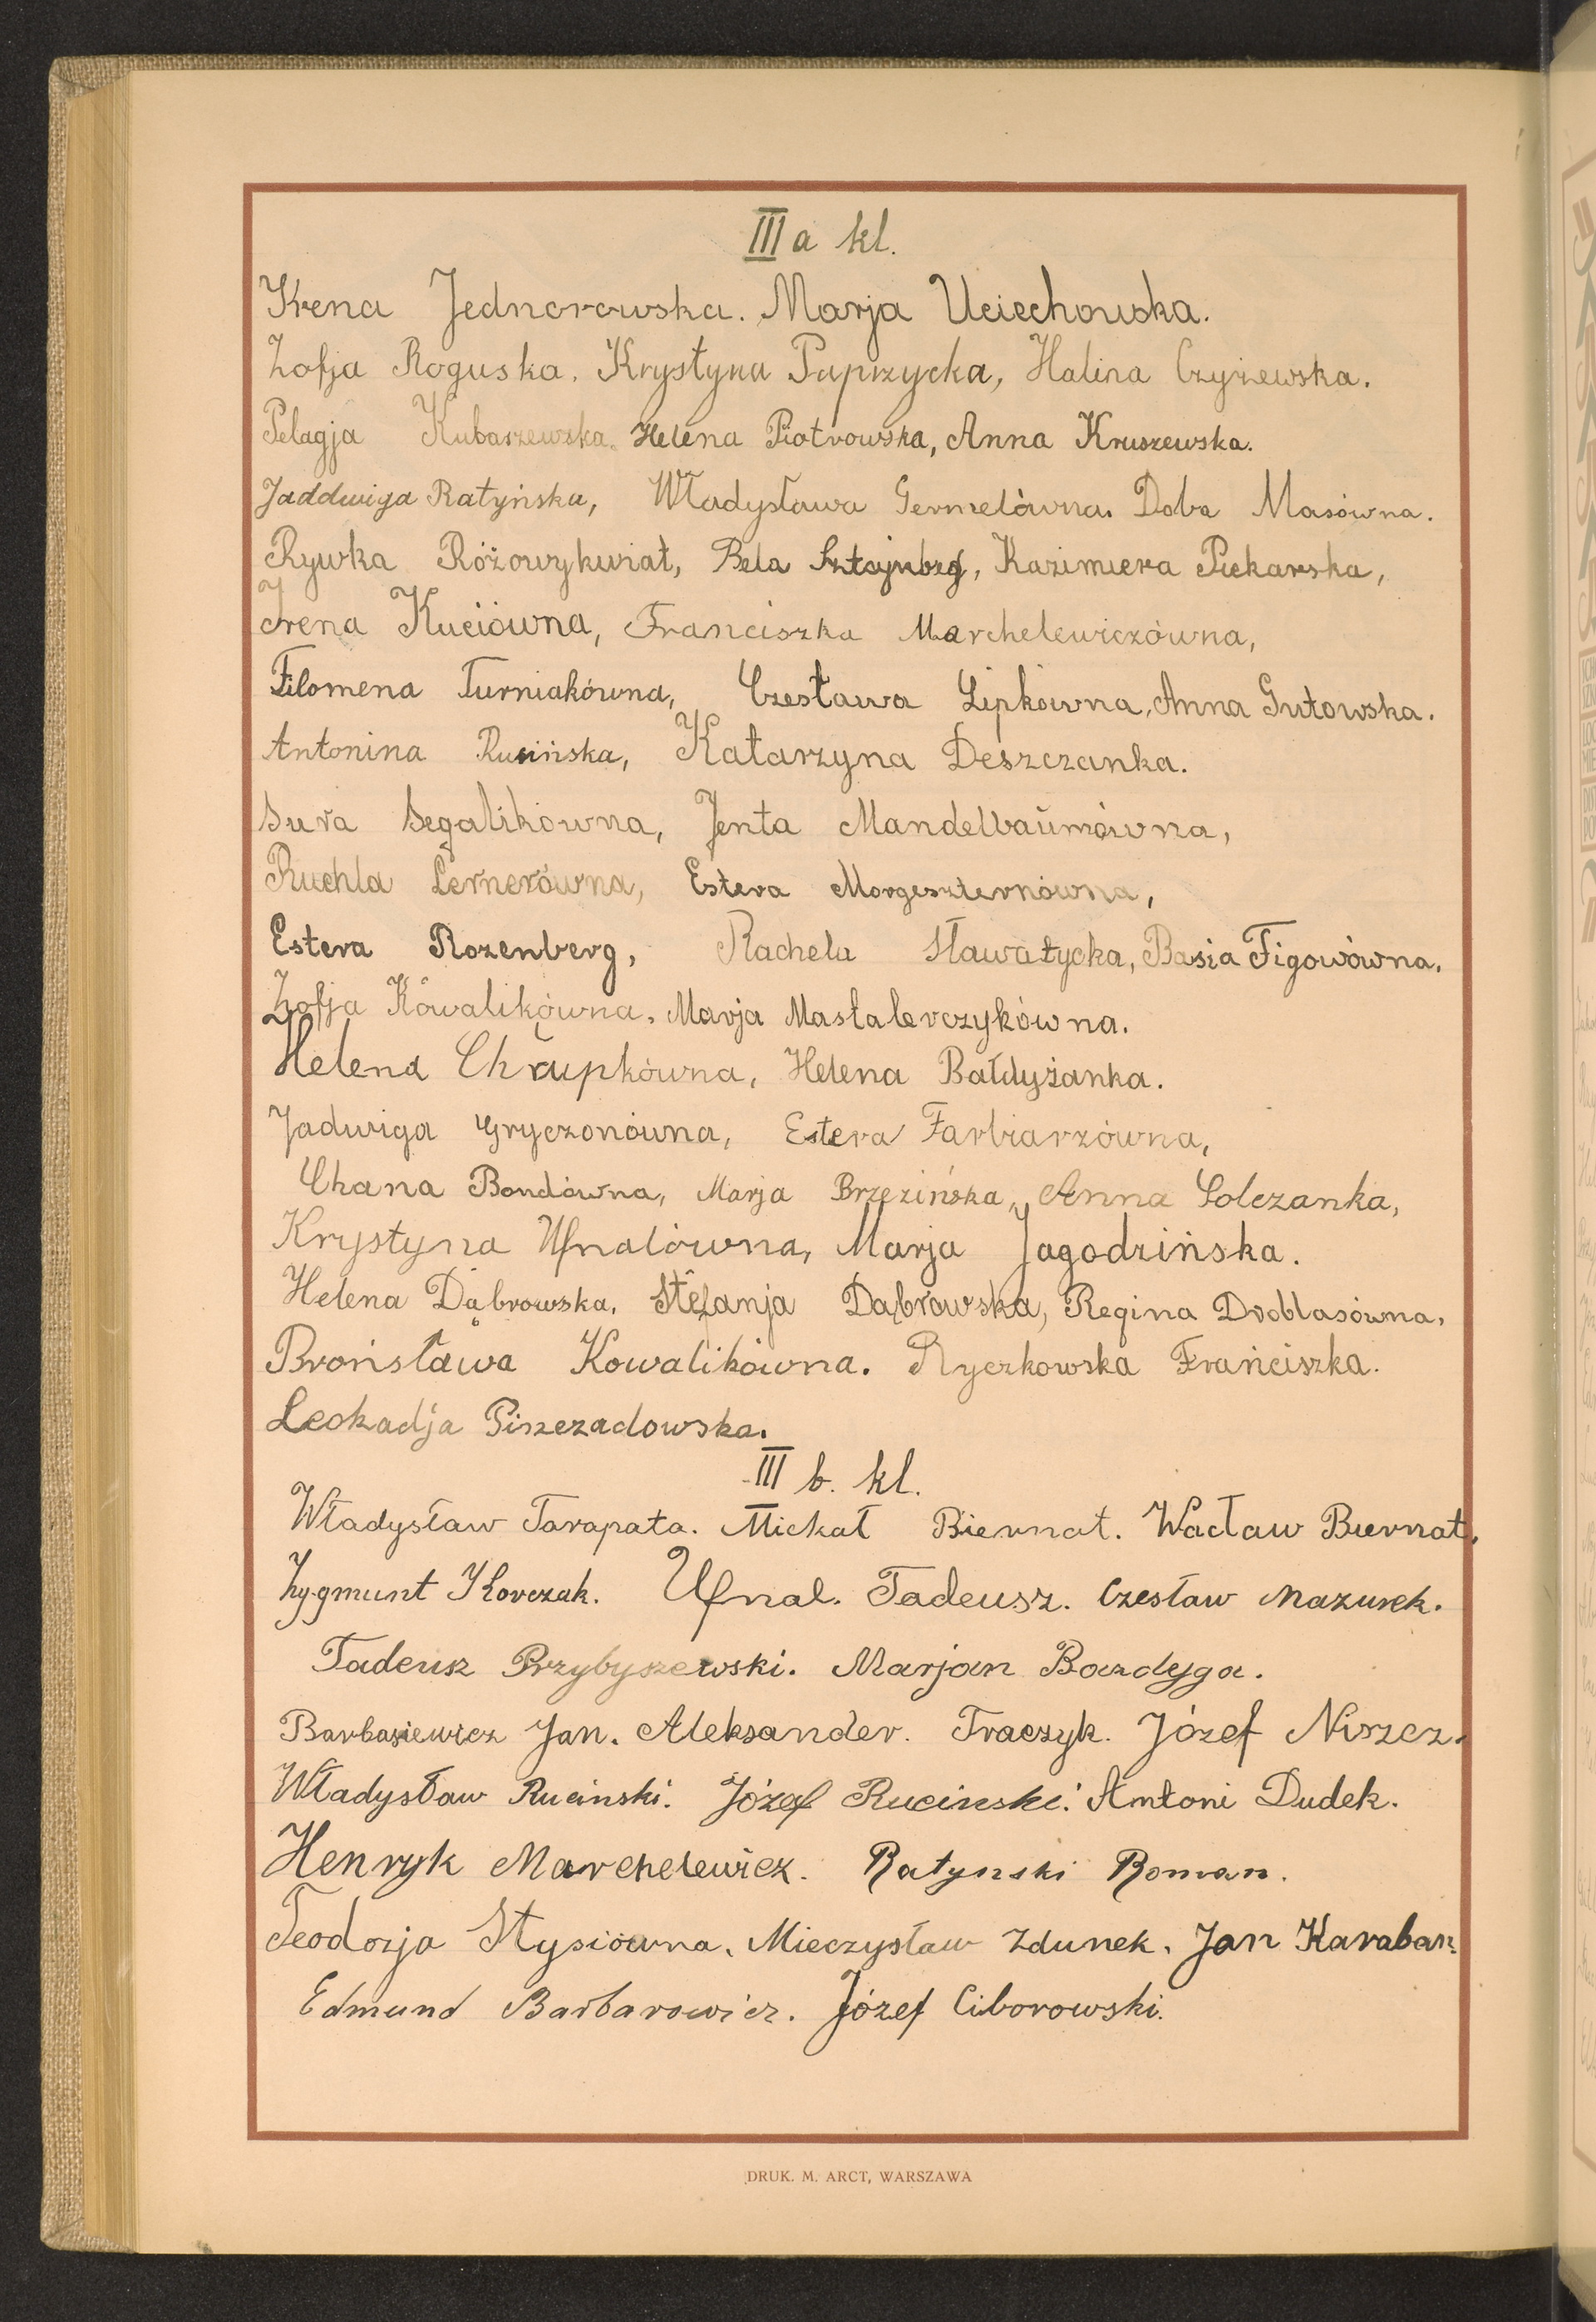 III a kl.
Irena Jednorowska. Marja Uciechowska.
Zofja Roguska. Krystyna Paprzycka, Halina Czyżewska.
Pelagja Kubaszewska. Helena Piotrowska, Anna Kruszewska.
Jaddwiga Ratyńska, Władysława Germelówna. Doba Masówna.
Rywka Różowykwiat, Bela Sztajnbrg, Kazimiera Piekarska,
Irena Kuciówna, Franciszka Marchelewiczówna,
Filomena Turniakówna, Czesława Lipkówna, Anna Gutowska.
Antonina Rusińska, Katarzyna Deszczanka.
Sura Segalikówna, Jenta Mandelbaumówna,
Ruchla Lernerówna, Estera Morgeszternówna,
Estera Rozenberg, Rachela Sławatycka, Basia Figowówna.
Zofja Kowalikówna. Marja Mastalerczykówna.
Helena Chrupkówna, Helena Bałdyżanka.
Jadwiga Gryczonówna, Estera Farbiarzówna,
Chana Bondówna, Marja Brzezińska, Anna Golczanka,
Krystyna Ufnalówna, Marja Jagodzińska.
Helena Dąbrowska. Stefanja Dąbrowska, Regina Droblasówna.
Bronisława Kowalikówna. Ryczkowska Franciszka.
Leokadja Piszczadowska.
III b. kl.
Władysław Tarapata. Michał Biernat. Wacław Biernat.
Zygmunt Korczak. Ufnal. Tadeusz. Czesław Mazurek.
Tadeusz Przybyszewski. Marjan Bazdyga.
Barbasiewicz Jan. Aleksander. Traczyk. Józef Niszcz.
Władysław Rucinski. Józef Rucinski. Antoni Dudek.
Henryk Marchelewicz. Ratynski Roman.
Teodozja Stysiówna. Mieczysław Zdunek. Jan Karaban.
Edmund Barbarowicz. Józef Ciborowski.
DRUK. M. ARCT, WARSZAWA